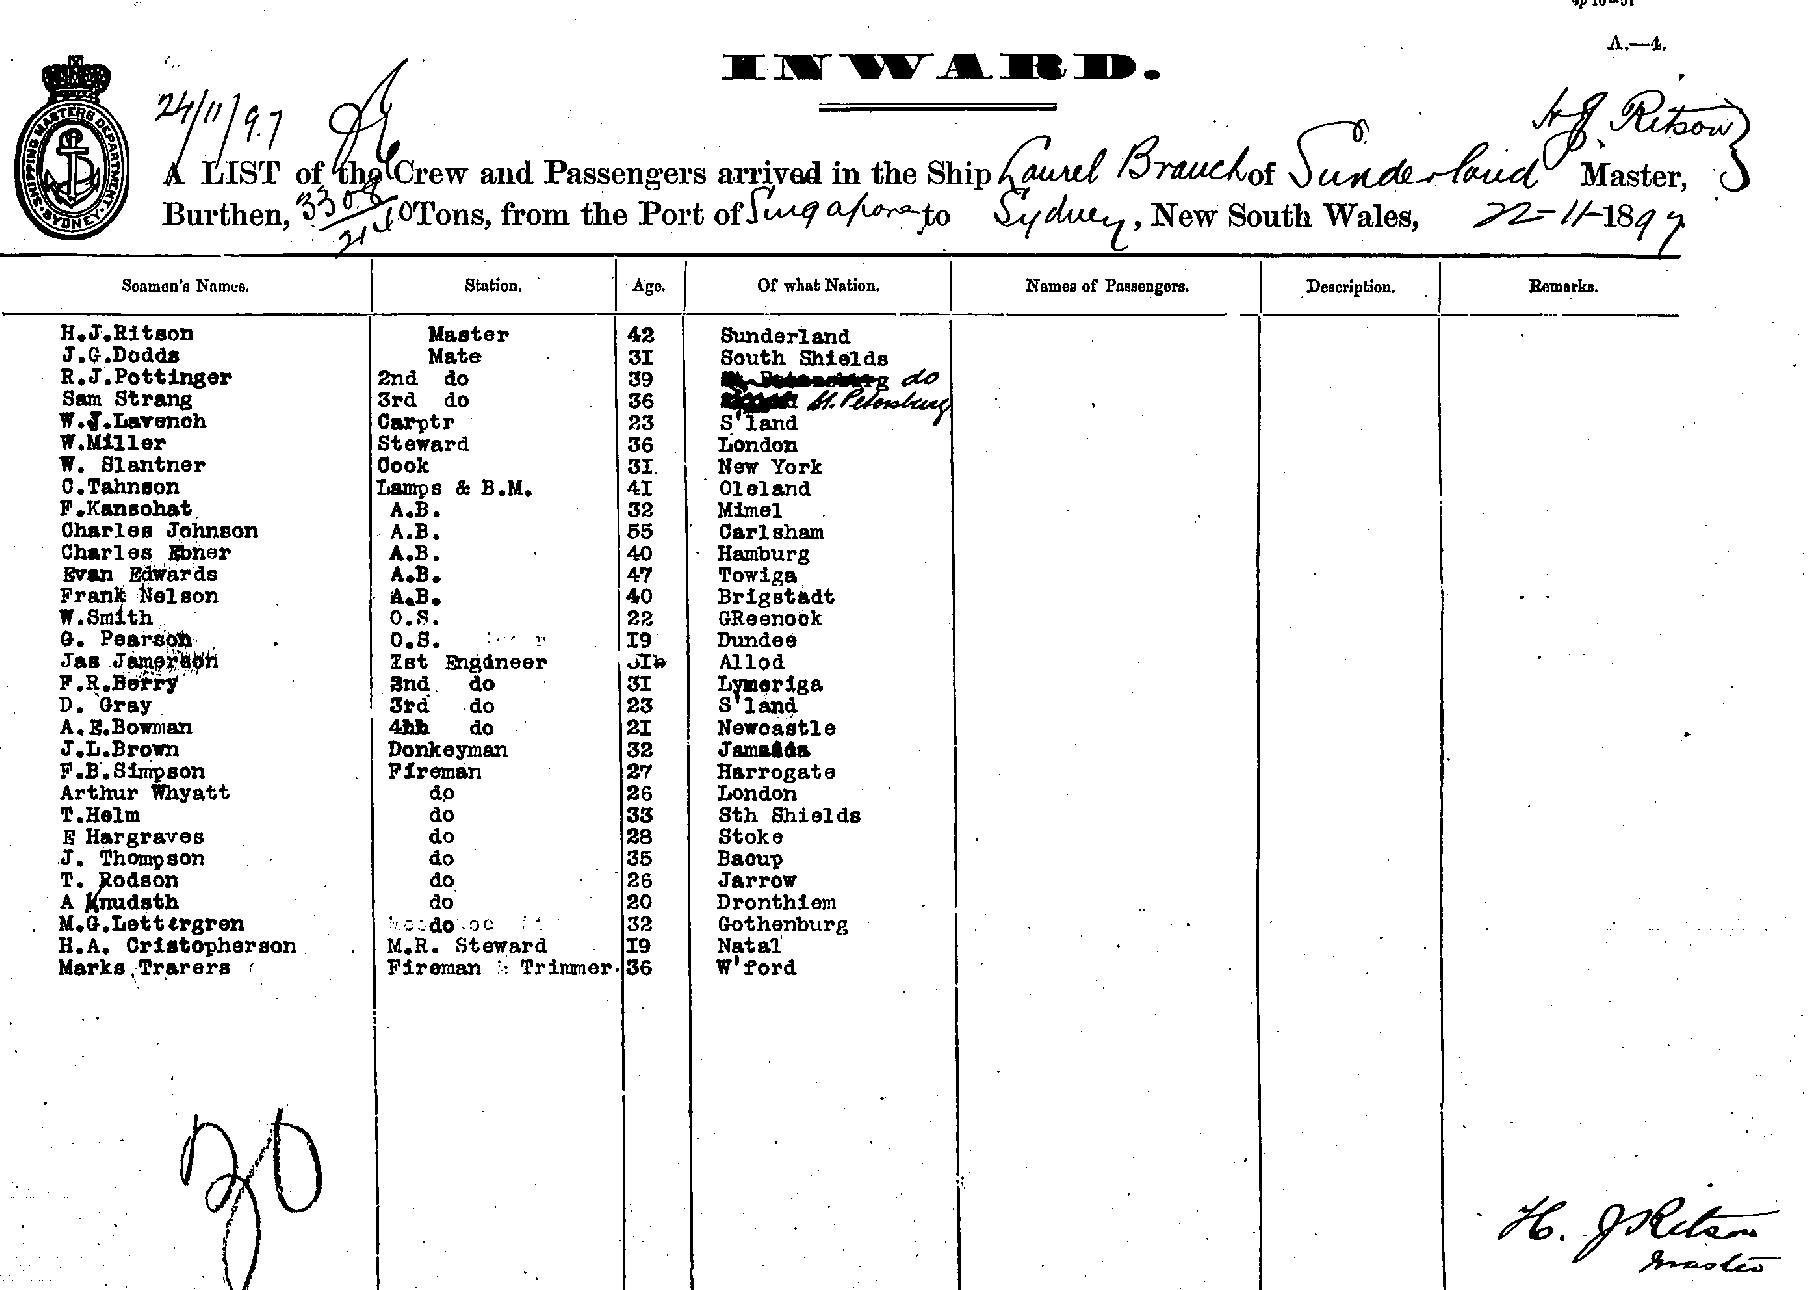 A.—4.
INWARD.
24/11/97
H J Ritson
SHIPPING MASTERS DEPARTMENT SYDNEY
A LIST of the Crew and Passengers arrived in the Ship Laurel Branch of Sunderland Master,
Burthen, 3308 Tons, from the Port of Singapore to Sydney, New South Wales, 22-11-1897
Seamen's Names. Station. Age. Of what Nation. Names of Passengers. Description. Remarks.
H.J.Ritson Master 42 Sunderland
J.G.Dodds Mate 31 South Shields
R.J.Pottinger 2nd do 39 do
Sam Strang 3rd do 36 St. Petersburg
W.J.Lavench Carptr 23 S'land
W.Miller Steward 36 London
W. Slantner Cook 31. New York
C.Tahnson Lamps & B.M. 41 Oleland
F.Kansohat A.B. 32 Mimel
Charles Johnson A.B. 55 Carlsham
Charles Ebner A.B. 40 Hamburg
Evan Edwards A.B. 47 Towiga
Frank Nelson A.B. 40 Brigstadt
W.Smith O.S. 22 GReenock
G. Pearson O.S. 19 Dundee
Jas Jamerson 1st Engineer Allod
F.R.Berry 2nd do 31 Lymeriga
D. Gray 3rd do 23 S'land
A.E.Bowman 4th do 21 Newcastle
J.L.Brown Donkeyman 32 Jamaida
F.B.Simpson Fireman 27 Harrogate
Arthur Whyatt do 26 London
T.Helm do 33 Sth Shields
E Hargraves do 28 Stoke
J. Thompson do 35 Bacup
T. Rodson do 26 Jarrow
A Knudsth do 20 Dronthiem
M.G.Lettergren do 32 Gothenburg
H.A. Cristopherson M.R. Steward 19 Natal
Marks Trarers Fireman & Trimmer 36 W'ford
30
H. J Ritson
Master